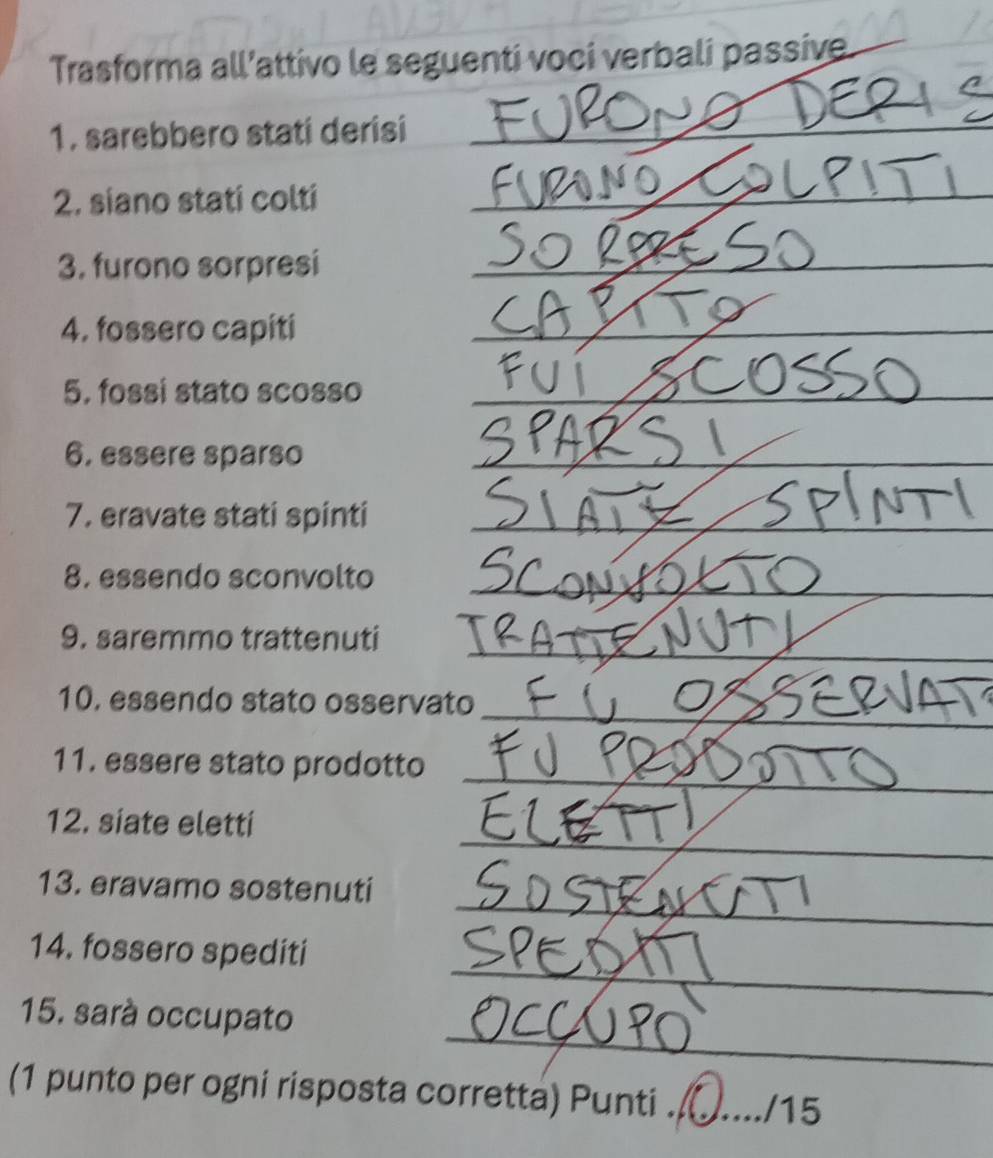 Trasforma all'attivo le seguenti voci verbali passive
1. sarebbero stati derisi FURONO DERIS
2. siano stati colti FURONO COLPITI
3. furono sorpresi SORPRESO
4. fossero capiti CAPITO
5. fossi stato scosso FUI SCOSSO
6. essere sparso SPARSI
7. eravate stati spinti SIATE SPINTI
8. essendo sconvolto SCONVOLTO
9. saremmo trattenuti TRATTENUTI
10. essendo stato osservato FU OSSERVAT
11. essere stato prodotto FU PRODOTTO
12. siate eletti ELETTI
13. eravamo sostenuti SOSTENUTI
14. fossero spediti SPEDITI
15. sarà occupato OCCUPÒ
(1 punto per ogni risposta corretta) Punti ...0..../15